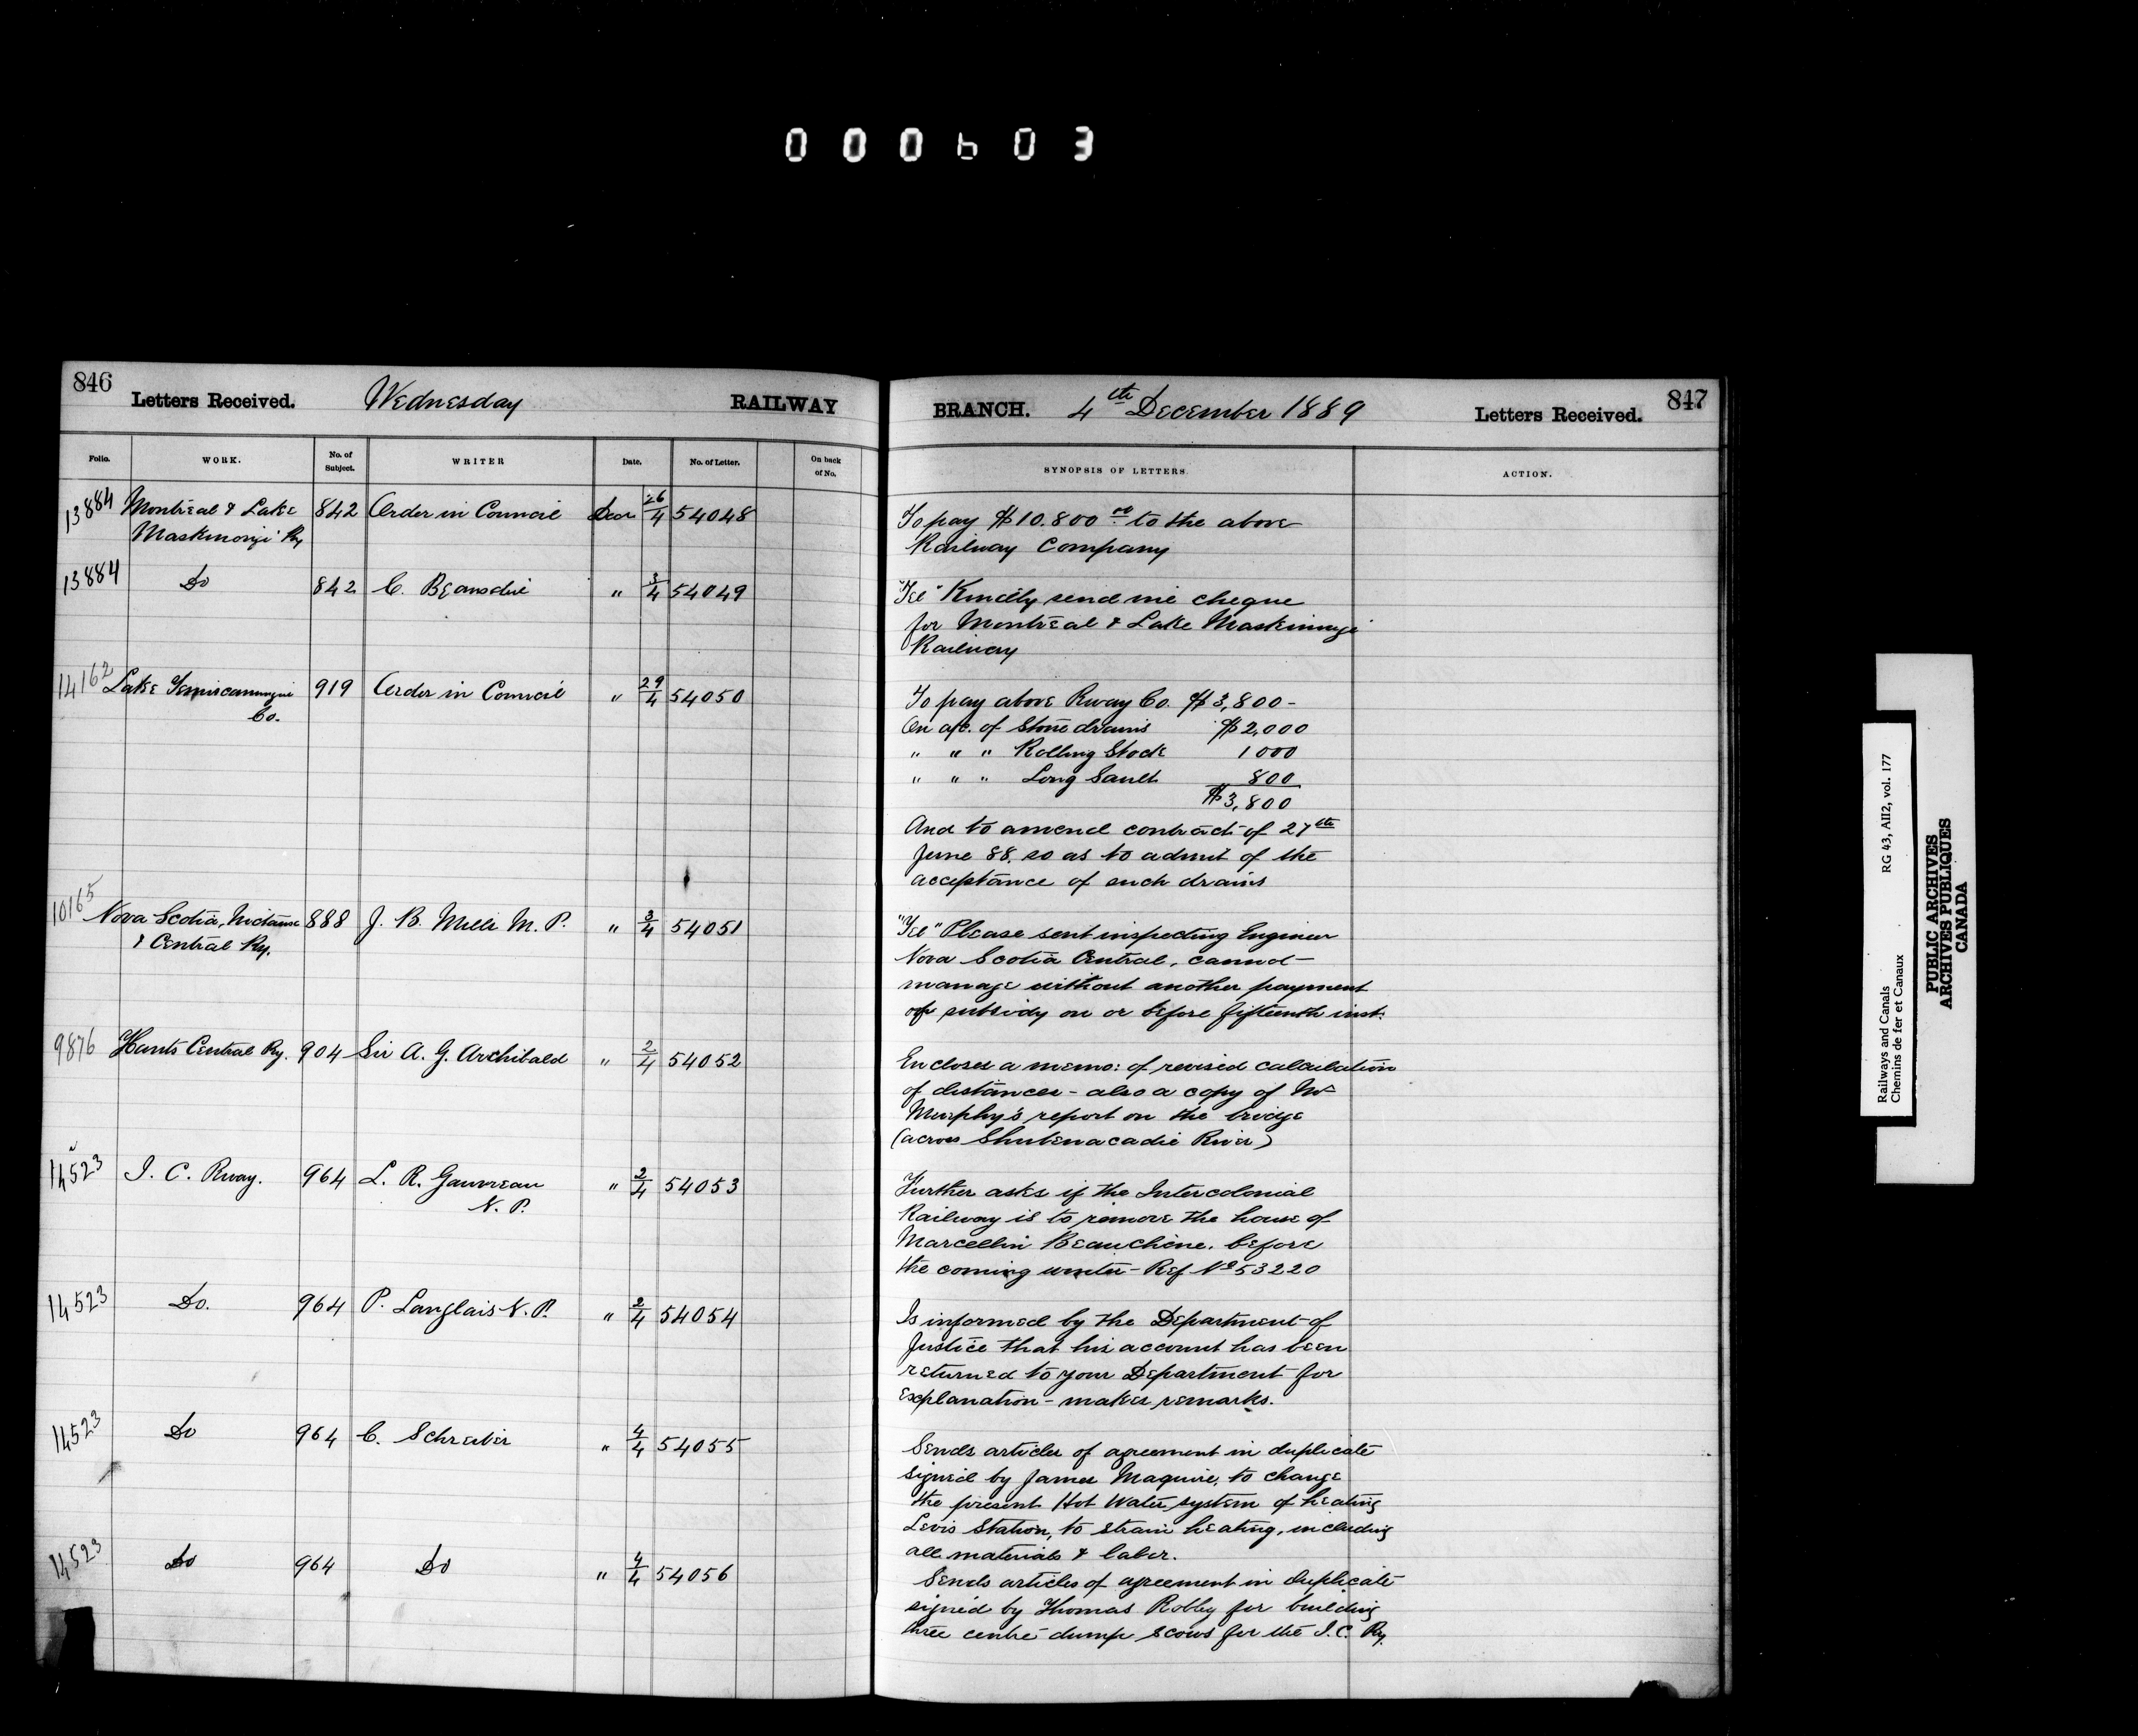 000603
846
Letters Received. Wednesday RAILWAY
BRANCH. 4th December 1889 Letters Received. 847
Folio. WORK. No. of Subject. WRITER Date. No. of Letter. On back of No. SYNOPSIS OF LETTERS. ACTION.
13884 Montreal & Lake 842 Order in Council Decr 26/4 54048 To pay $10.800 00 to the above
Maskinongé Ry Railway Company
13884 Do 842 C. Beausoliel " 3/4 54049 "Tel" Kindly send me cheque
for Montreal & Lake Maskinongé
Railway
14162 Lake Temiscamingue 919 Order in Council " 29/4 54050 To pay above Rway Co. $3,800-
Co. On a/c. of Stone drains $2,000
" " " Rolling Stock 1000
" " " Long Sault 800
$3,800
And to amend contract of 27th
June 88. so as to admit of the
acceptance of such drains
10165 Nova Scotia, Nictaux 888 J. B. Mills M. P. " 3/4 54051 "Tel" Please sent inspecting Engineer
& Central Ry. Nova Scotia Central, cannot
manage without another payment
of subsidy on or before fifteenth inst.
9876 Hants Central Ry. 904 Sir A. G. Archibald " 2/4 54052 Encloses a memo: of revised calculation
of distances - also a copy of Mr
Murphy's report on the bridge
(across Shubenacadie River)
14523 I. C. Rway. 964 L. R. Gauvreau " 2/4 54053 Further asks if the Intercolonial
N. P. Railway is to remove the house of
Marcellin Beauchène. before
the coming winter - Ref No 53220
14523 Do. 964 P. Langlais N. P. " 2/4 54054 Is informed by the Department of
Justice that his account has been
returned to your Department for
explanation - makes remarks.
14523 Do 964 C. Schreiber " 4/4 54055 Sends articles of agreement in duplicate
signed by James Maguire, to change
the present Hot Water system of heating
Levis Station, to steam heating, including
all materials & labor.
14523 Do 964 Do " 4/4 54056 Sends articles of agreement in duplicate
signed by Thomas Robley for building
three centre dump scows for the I.C. Ry.
Railways and Canals RG 43, AII2, vol. 177
Chemins de fer et Canaux
PUBLIC ARCHIVES
ARCHIVES PUBLIQUES
CANADA